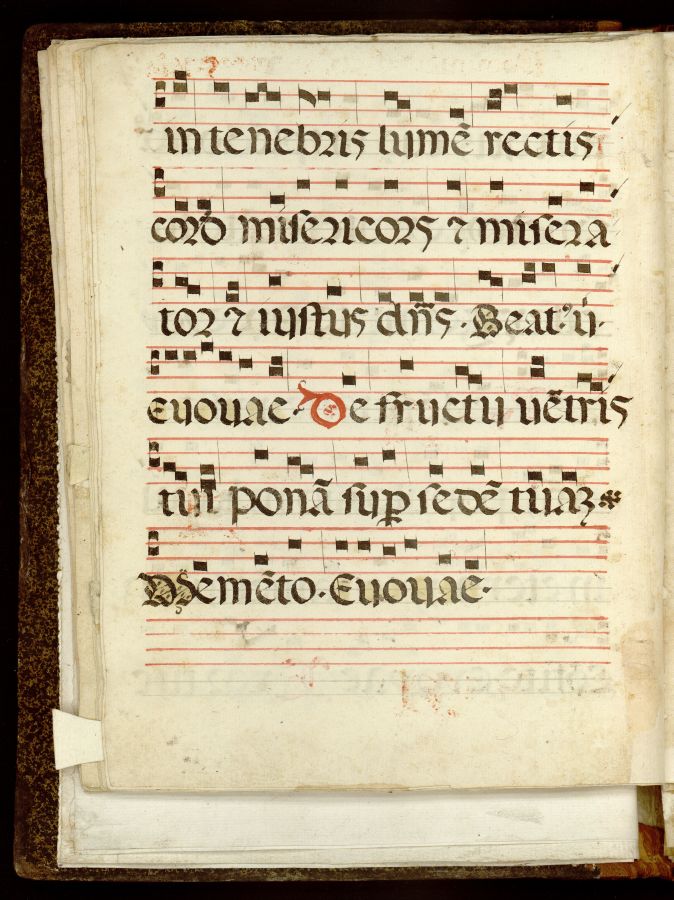 in tenebꝛis lumē rectis
coꝛð miſeꝛicoꝛs ⁊ miſeꝛa
toꝛ ⁊ iuſtus dn̄s · Beat⁹ ui·
Euouae · De fructu uētris
tui ponā ſuꝑ ſedē tuaꝫ
Memēto · Euouae ·